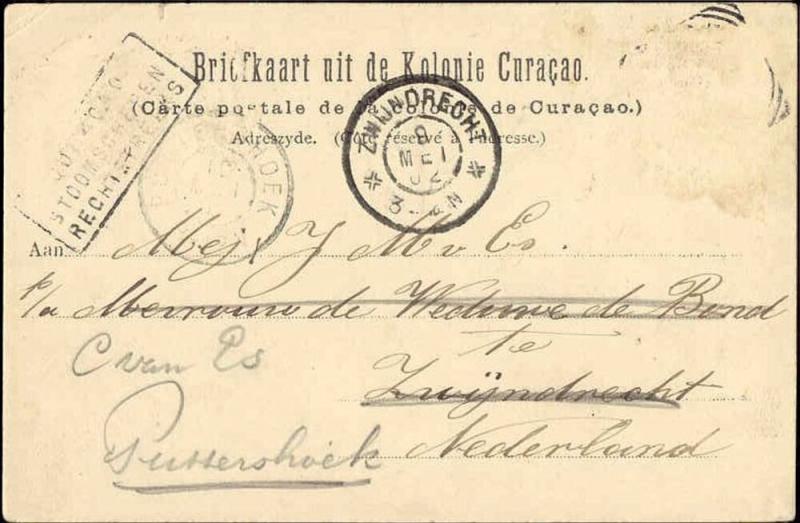 Briefkaart uit de Kolonie Curaçao.
(Carte postale de la Colonie de Curaçao.)
Adreszyde. (Côté réservé à l'adresse.)
STOOMSCHEPEN
RECHTSTREEKS
ZWIJNDRECHT
8
MEI
02
3-4N
HOEK
Aan Mej J M v Es.
p/a Mevrouw de Weduwe de Bond
te
Zwijndrecht
Nederland
C van Es
Puttershoek